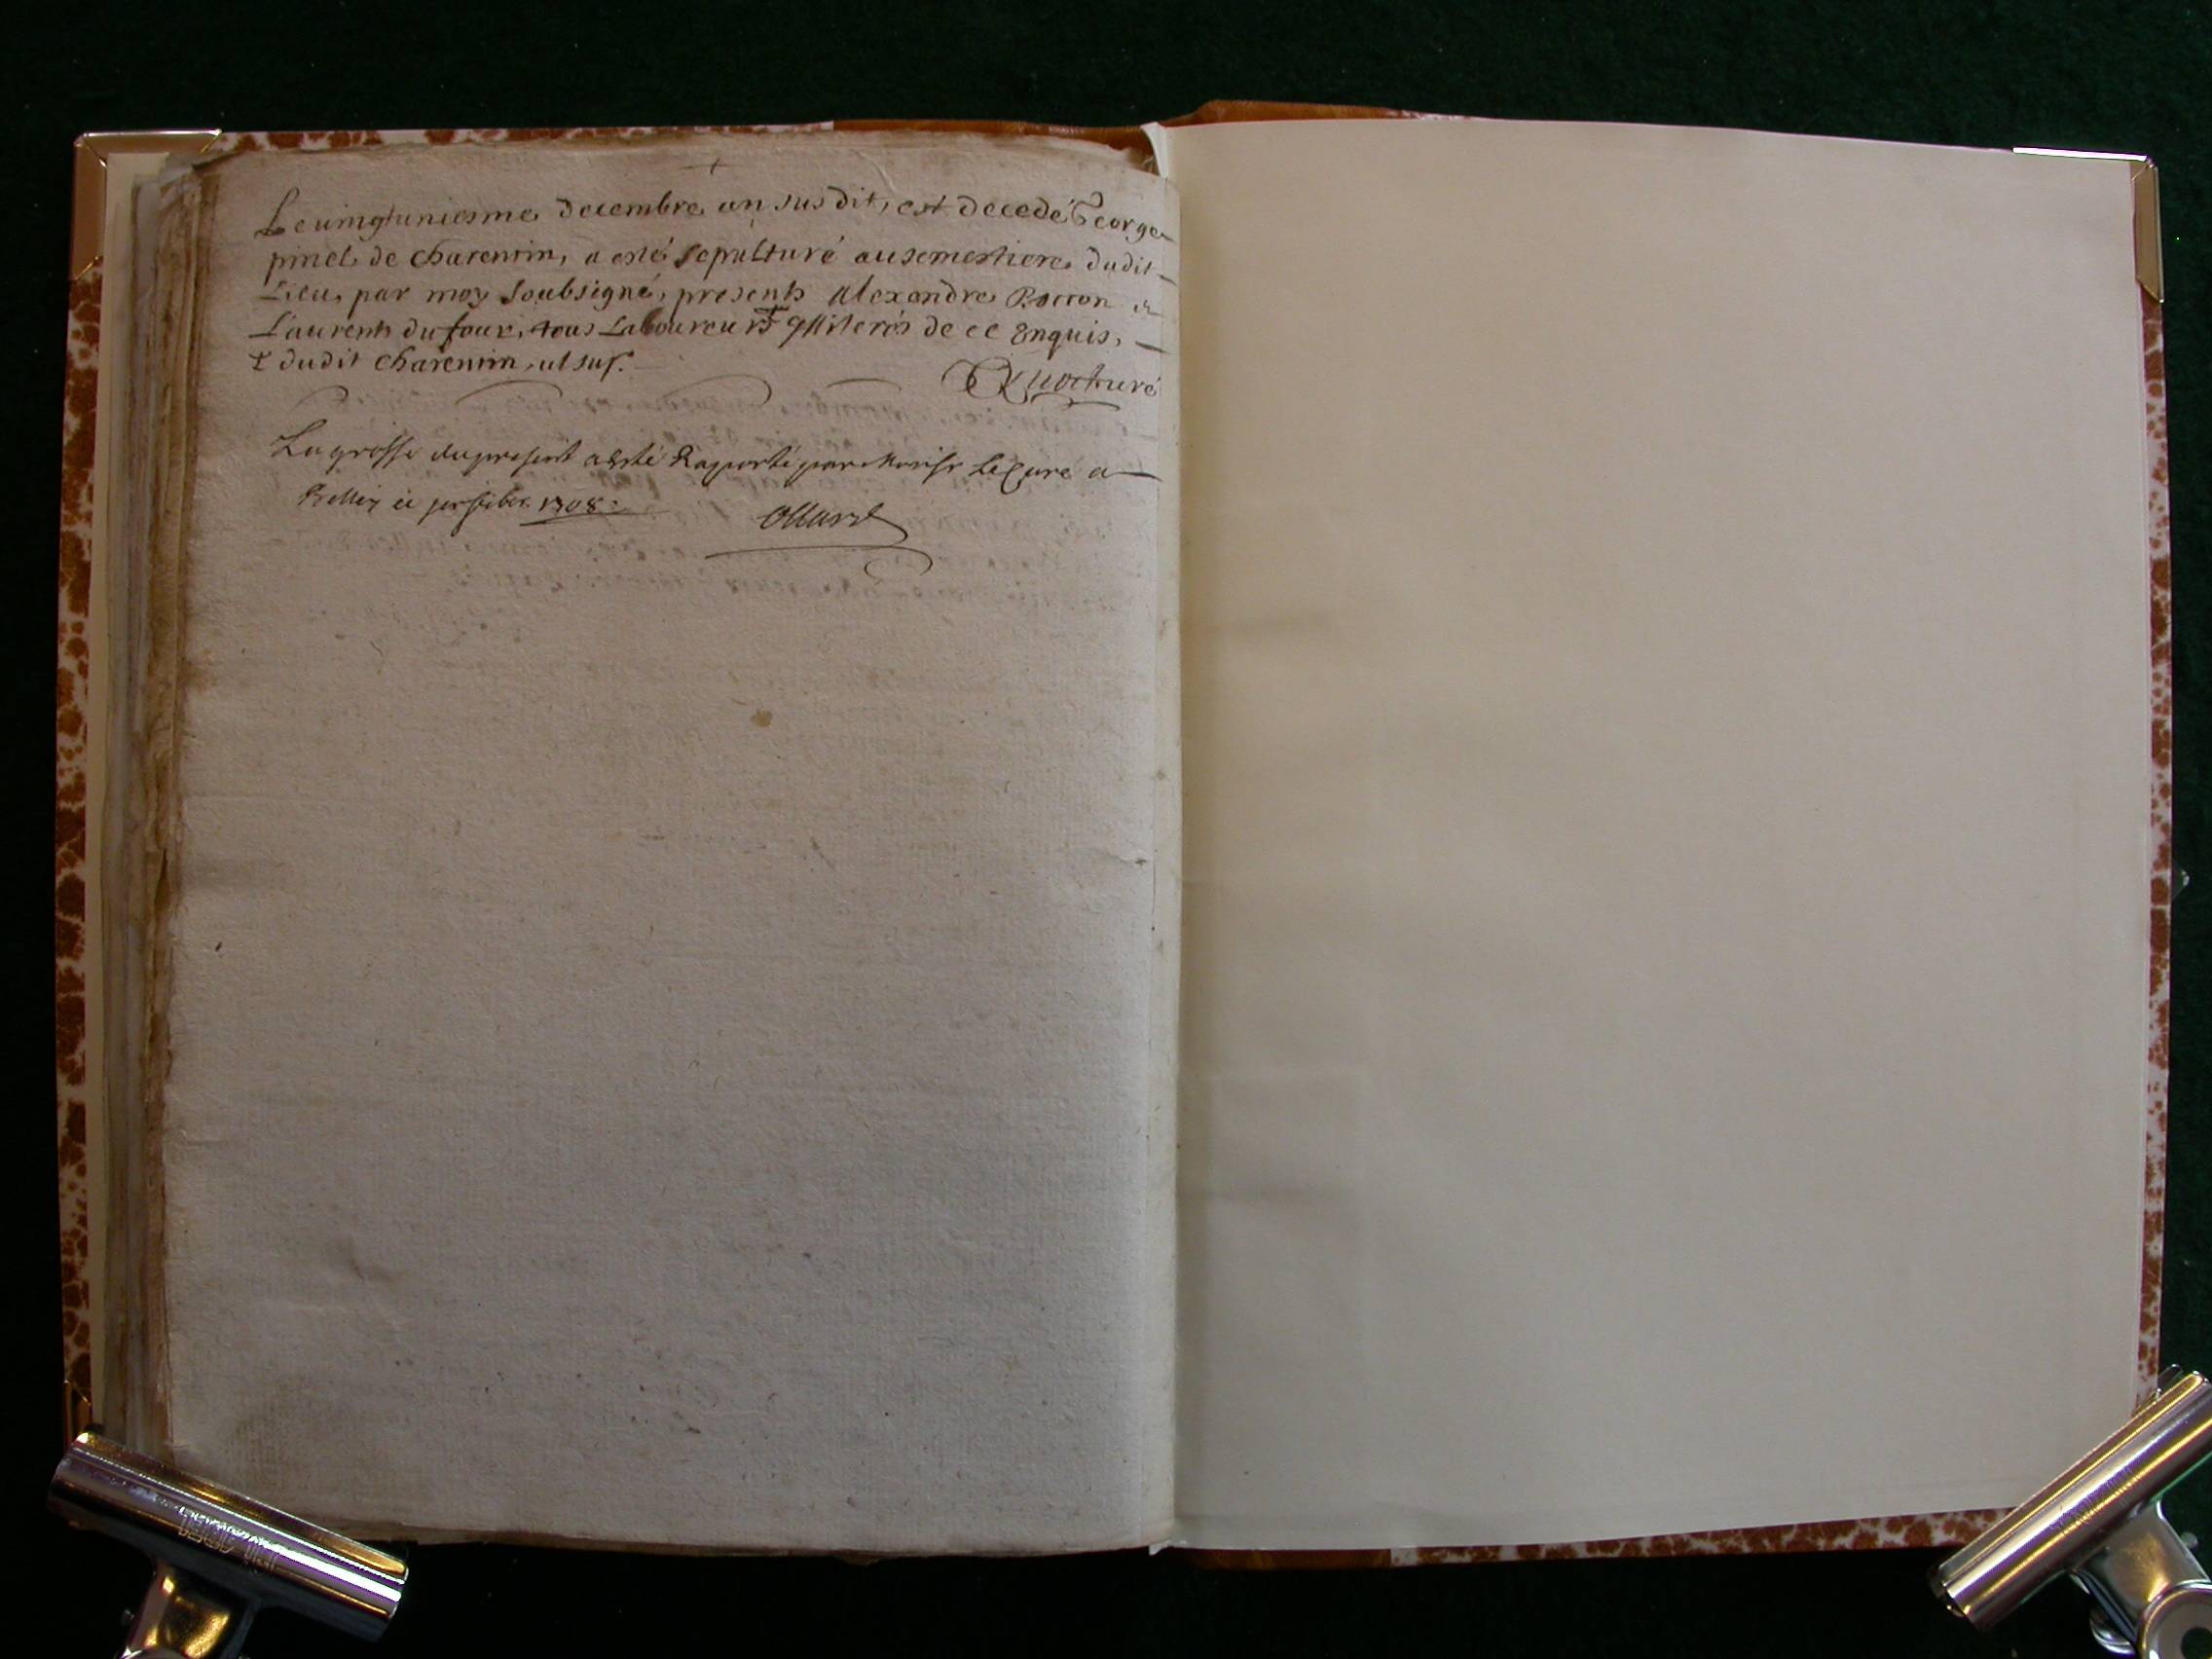 +
Le vingtuniesme decembre an susdit, est decedé George
pinel de charentin, a esté sepulturé au semestiere dudit
Lieu, par moy soubsigné, presents Alexandre Borron &
Laurents dufour, tous Laboureurs illiterés de ce Enquis,
+ dudit charentin, ut sus.
curé
La grosse du present a esté Raporté par Monsr Le Curé a
Belley ce 1708